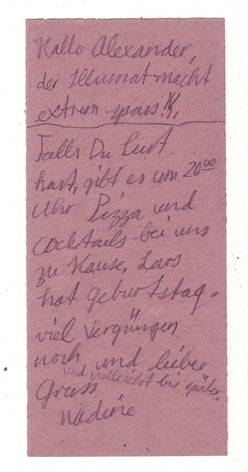 Hallo Alexander,
der Illumat macht
extrem spass!!!
Falls Du Lust
hast, gibt es um 20⁰⁰
Uhr Pizza und
Cocktails bei uns
zu Hause, Lars
hat Geburtstag.
viel Vergnügen
noch und lieber
und vielleicht bis später.
Gruss
Nadine